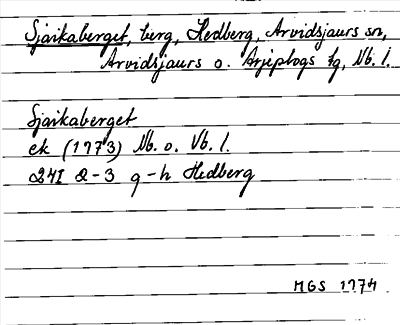 Sjaikaberget, berg, Hedberg, Arvidsjaurs sn,
Arvidsjaurs o. Arjeplogs tg, Nb. l.
Sjaikaberget
ek (1973) Nb. o. Vb. l.
24I 2-3 g-h Hedberg
MGS 1974